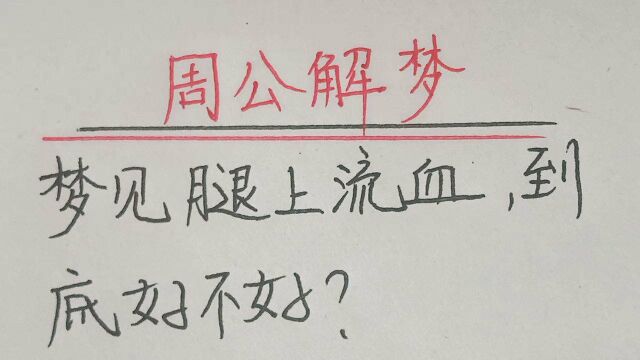 周公解梦
梦见腿上流血,到
底好不好?